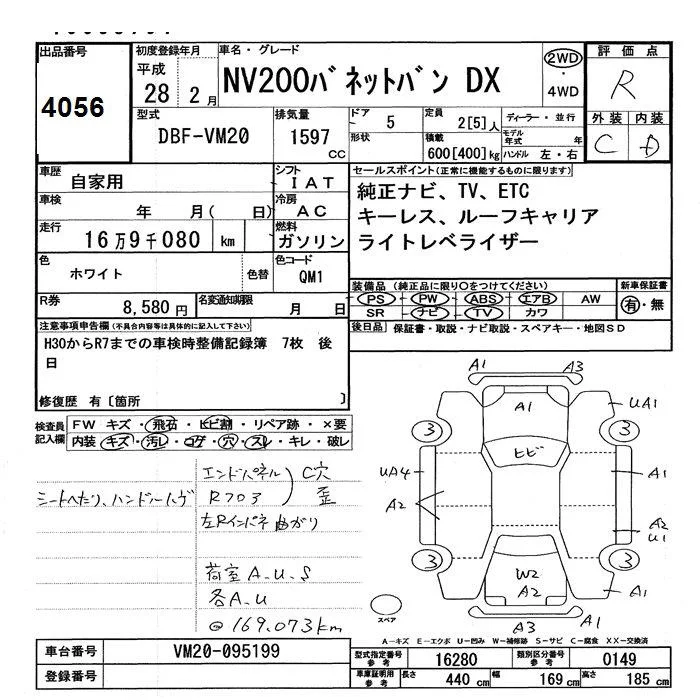 出品番号
4056
初度登録年月
平成
28 2月
車名・グレード
NV200バネットバン DX
2WD
・
4WD
評価点
R
外装 内装
C D
型式
DBF-VM20
排気量
1597
CC
ドア 5
形状
定員 2[5]人
積載 600[400]kg
ディーラー・並行
モデル年式 年
ハンドル 左・右
車歴 自家用
シフト IAT
車検 年 月( 日)
冷房 AC
走行 16万9千080 km
燃料 ガソリン
色 ホワイト 色替
色コード QM1
R券 8,580円
名変通知期限 月 日
セールスポイント(正常に機能するものに限ります)
純正ナビ、TV、ETC
キーレス、ルーフキャリア
ライトレベライザー
装備品 (純正品に限り○をつけてください)
PS PW ABS エアB AW
SR ナビ TV カワ
新車保証書
有・無
後日品 保証書・取説・ナビ取説・スペアキー・地図SD
注意事項申告欄(不具合内容等は具体的に記入して下さい)
H30からR7までの車検時整備記録簿 7枚 後
日
修復歴 有〔箇所 〕
検査員
記入欄
FW キズ・飛石・ヒビ割・リペア跡・×要
内装 キズ・汚レ・コゲ・穴・スレ・キレ・破レ
シートへたり、ハンドル
エンドパネル C穴
R703 歪
左Rインパネ 曲がり
荷室 A.U.S
各A.U
@169,073km
A1 A3
A1
UA1
3 3
ヒビ
UA4
A2
A1
A2
U1
3 3
W2
A2
A1
A3 A1
スペア
A-キズ E-エクボ U-凹み W-補修跡 S-サビ C-腐食 XX-交換済
車台番号 VM20-095199
登録番号
型式指定番号 参考 16280
類別区分番号 参考 0149
車庫証明用 参考 長さ 440 cm 幅 169 cm 高さ 185 cm